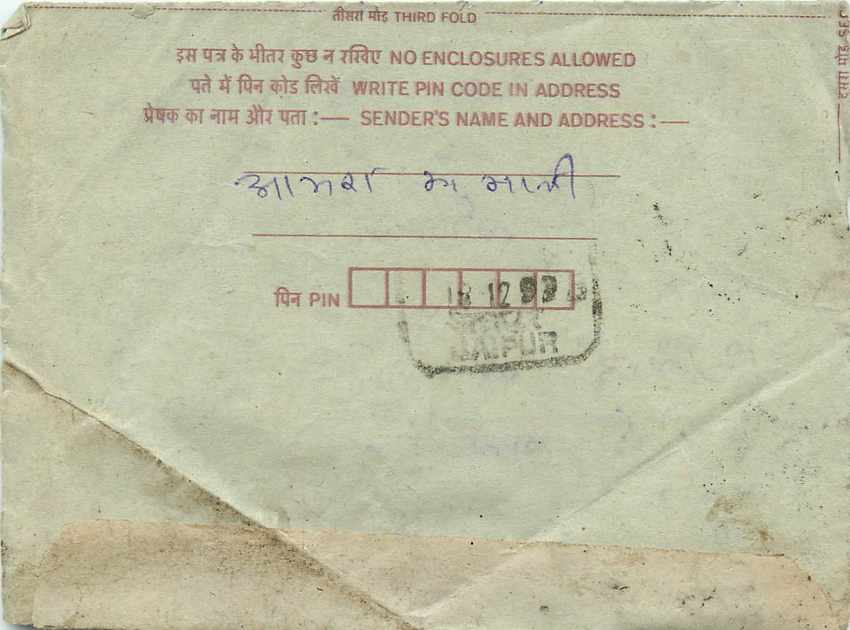 तीसरा मोड़ THIRD FOLD
इस पत्र के भीतर कुछ न रखिए NO ENCLOSURES ALLOWED
पते में पिन कोड लिखें WRITE PIN CODE IN ADDRESS
प्रेषक का नाम और पता :— SENDER'S NAME AND ADDRESS :—
पिन PIN
18 12 99
JAIPUR
दूसरा मोड़ SEC